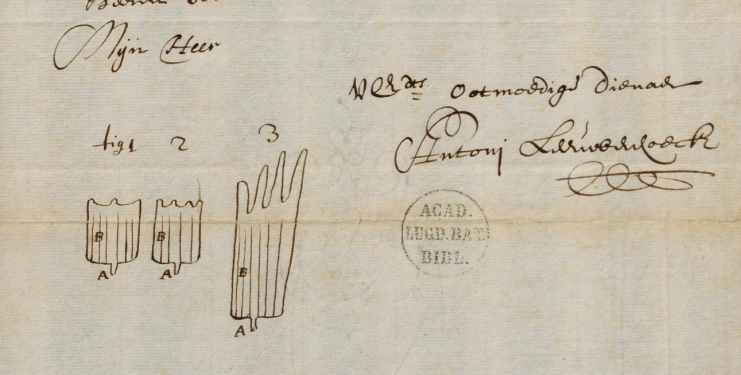 Mijn Heer
UEdts Ootmoedige Dienaer
Antonj Leeuwenhoeck
fig 1 2 3
B B B
A A A
ACAD.
LUGD. BAT.
BIBL.